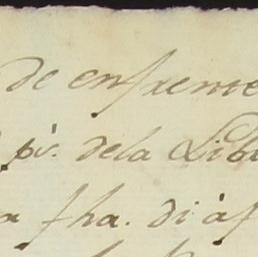 de enfrente
pr. dela Lib
fha. di